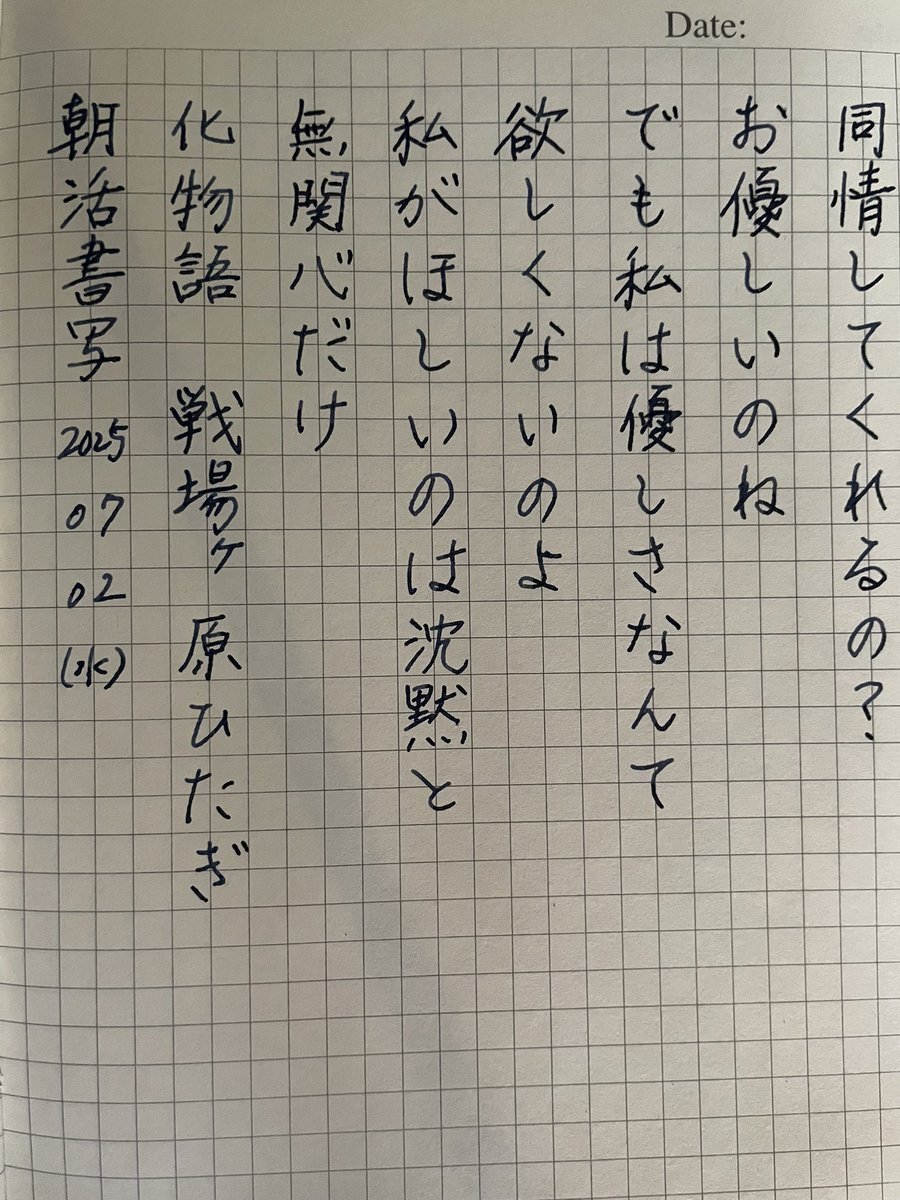 Date:
同情してくれるの?
お優しいのね
でも私は優しさなんて
欲しくないのよ
私がほしいのは沈黙と
無関心だけ
化物語 戦場ヶ原ひたぎ
朝活書写 2025 07 02 (水)